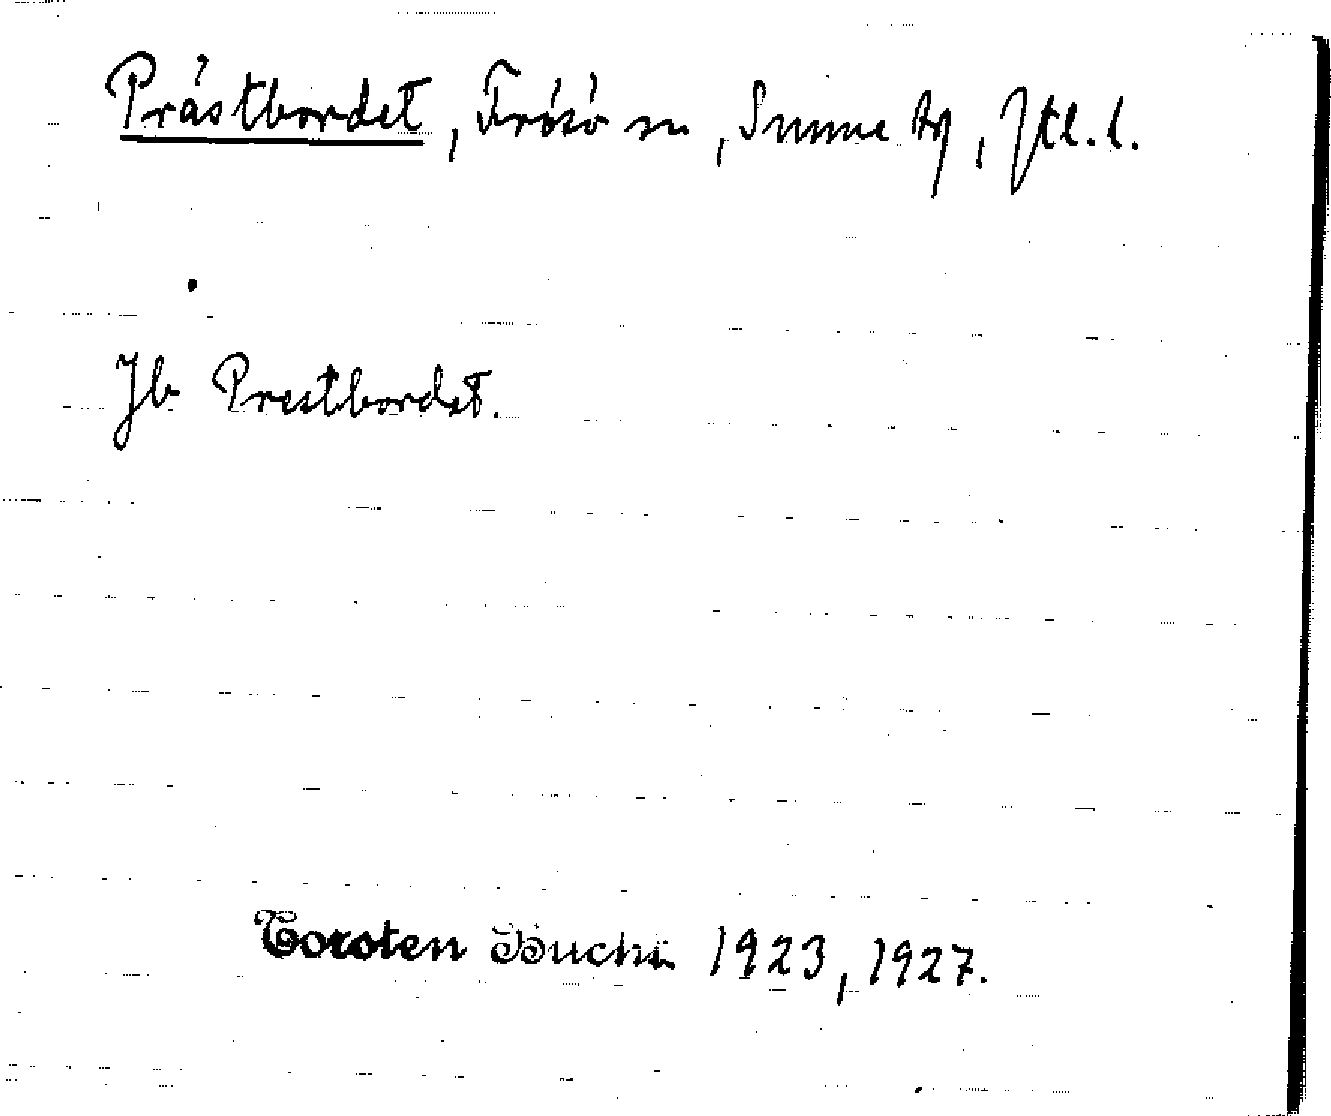 Prästbordet, Frösö sn, Sunne tg, Jtl. l.
Jb Prestbordet.
Torsten Bucht 1923, 1927.